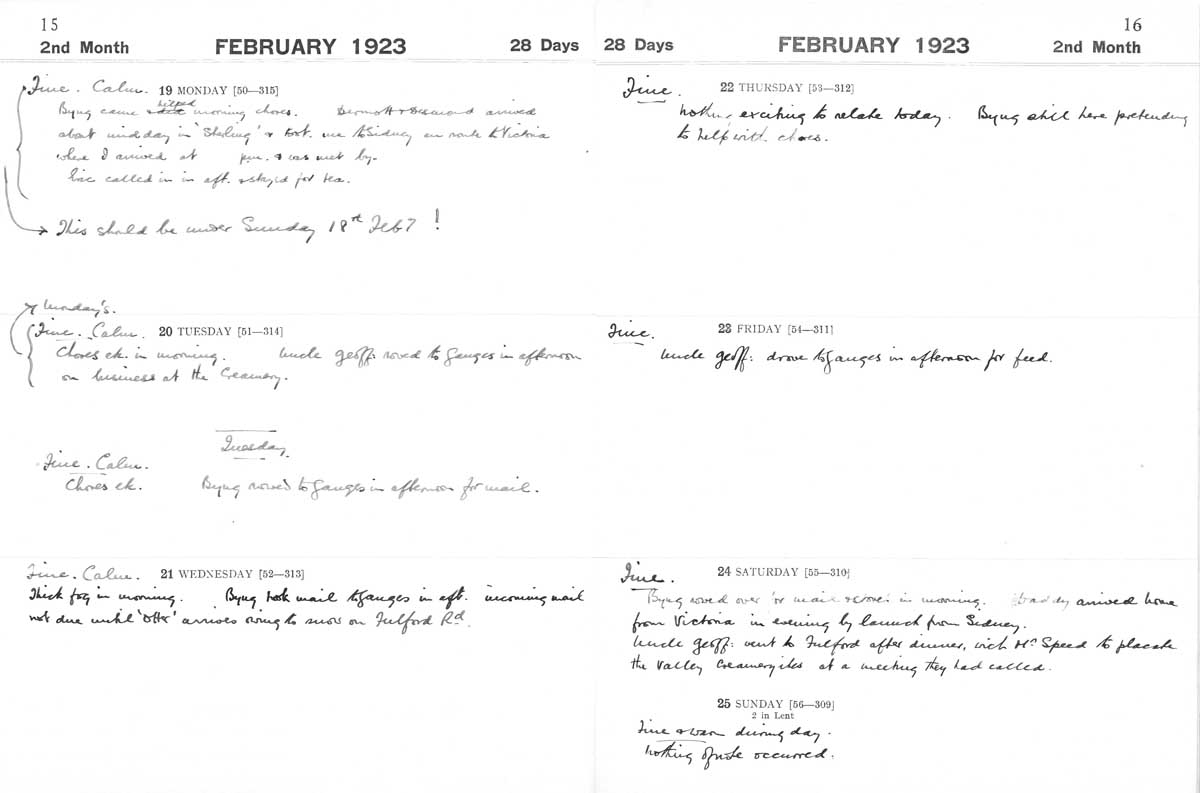 15
2nd Month FEBRUARY 1923 28 Days
Fine. Calm. 19 MONDAY [50—315]
Byng came & helped morning chores. Dermott & Desmond arrived
about midday in 'Sterling' & took me to Sidney en route to Victoria
where I arrived at pm. & was met by.
called in in aft. & stayed for tea.
→ This should be under Sunday 18th Feb 7 !
Monday's.
Fine. Calm. 20 TUESDAY [51—314]
Chores etc. in morning. Uncle Geoff: rowed to Ganges in afternoon
on business at the Creamery.
Tuesday
Fine. Calm.
Chores etc. Byng rowed to Ganges in afternoon for mail.
Fine. Calm. 21 WEDNESDAY [52—313]
Thick fog in morning. Byng took mail to Ganges in aft. incoming mail
not due until 'Otter' arrives owing to snow on Fulford Rd.
16
28 Days FEBRUARY 1923 2nd Month
Fine. 22 THURSDAY [53—312]
Nothing exciting to relate today. Byng still here pretending
to help with chores.
Fine. 23 FRIDAY [54—311]
Uncle Geoff: drove to Ganges in afternoon for feed.
Fine. 24 SATURDAY [55—310]
Byng rowed over for mail & stores in morning. Daddy arrived home
from Victoria in evening by launch from Sidney.
Uncle Geoff: went to Fulford after dinner, with Mr Speed to placate
the Valley Creameryites at a meeting they had called.
25 SUNDAY [56—309]
2 in Lent
Fine & warm during day.
Nothing of note occurred.